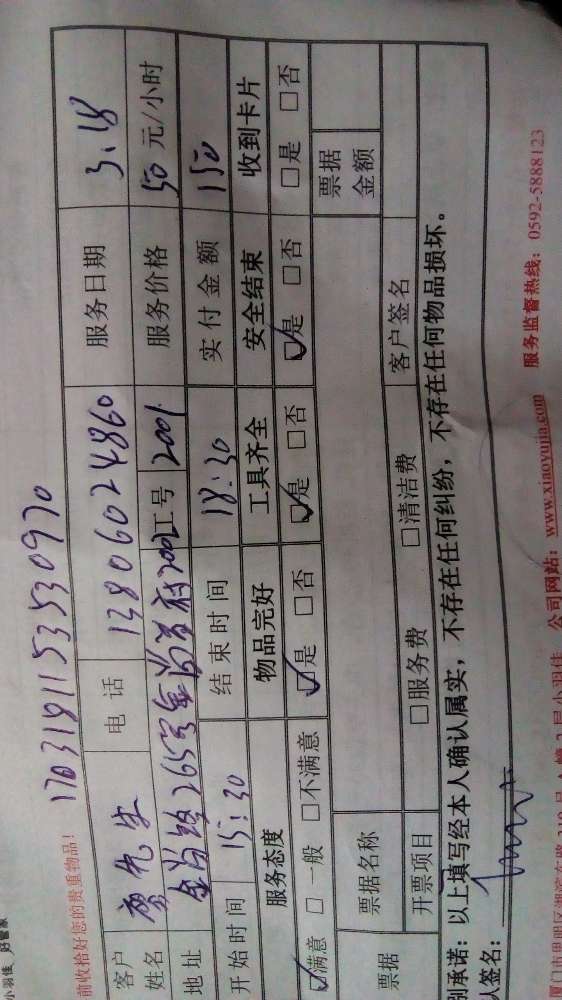 小羽佳 好管家
前收拾好您的贵重物品!
1703181153530970
客户姓名 先生 电话 13806024860 服务日期 3.18
地址 265号 2002 工号 2001 服务价格 50 元/小时
开始时间 15:30 结束时间 18:30 实付金额 150
服务态度 物品完好 工具齐全 安全结束 收到卡片
☑满意 □一般 □不满意 ☑是 □否 ☑是 □否 ☑是 □否 □是 □否
票据 票据名称 票据金额
开票项目 □服务费 □清洁费 客户签名
别承诺：以上填写经本人确认属实，不存在任何纠纷，不存在任何物品损坏。
人签名：
厦门市思明区湖滨东路 319 号 2 层小羽佳 公司网站：www.xiaoyujia.com 服务监督热线：0592-5888123